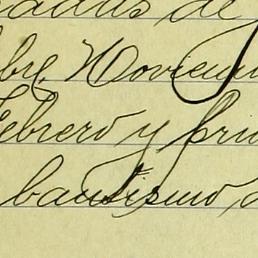 de
bre Noviem
Febrero y pri
bautismo